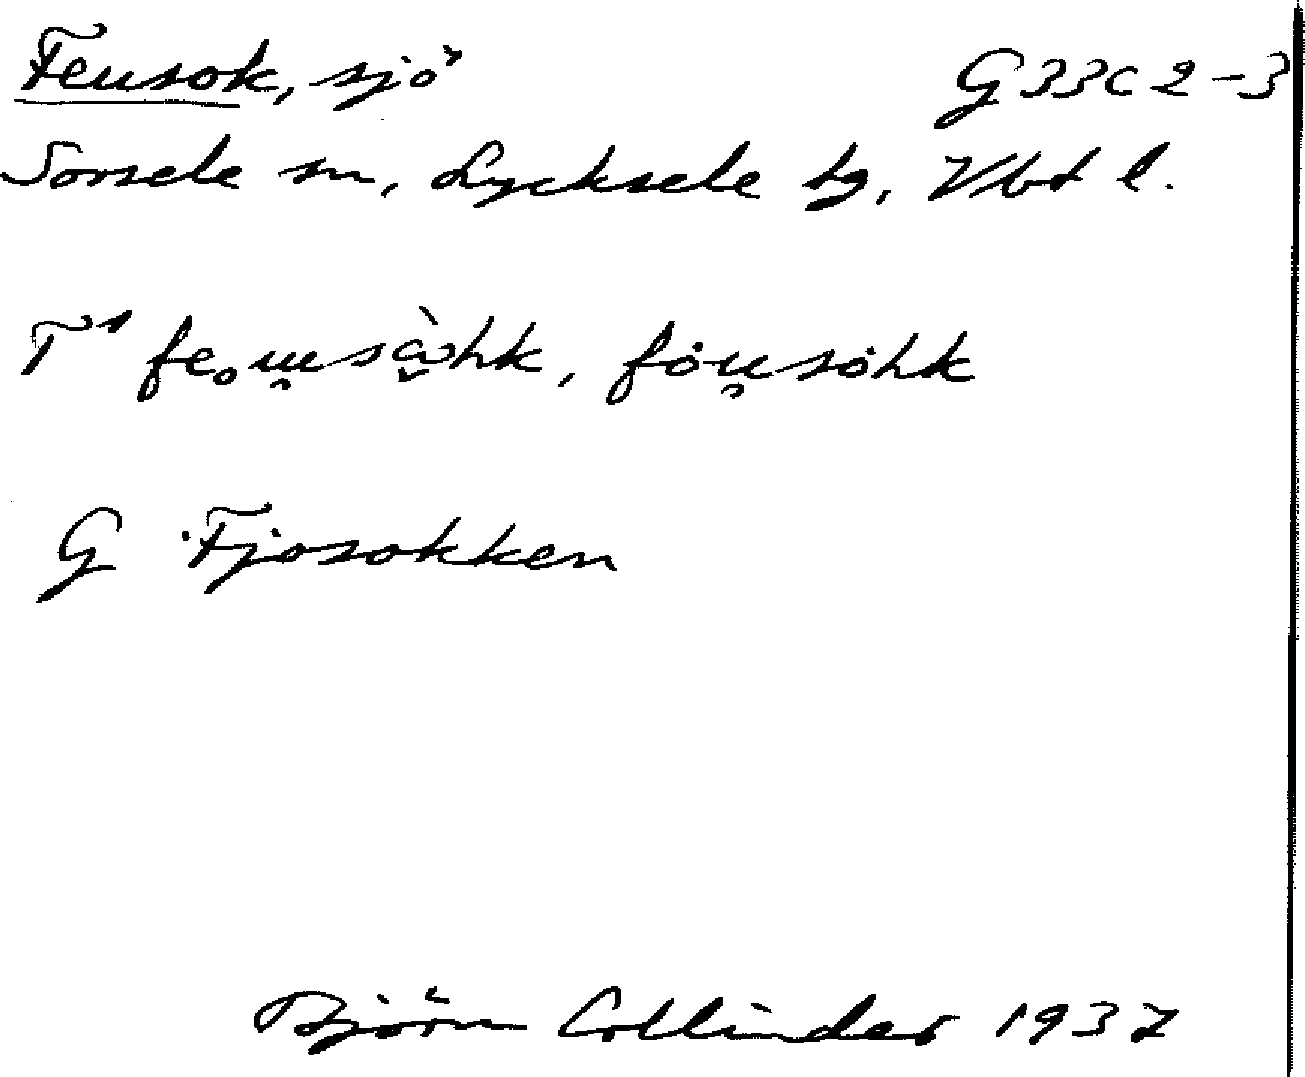 Feusok, sjö G 33 C 2-3
Sorsele sn, Lycksele tg, Vbt l.
fe˳u̯så̀hk, föu̯söhk
G Fjosokken
Björn Collinder 1937